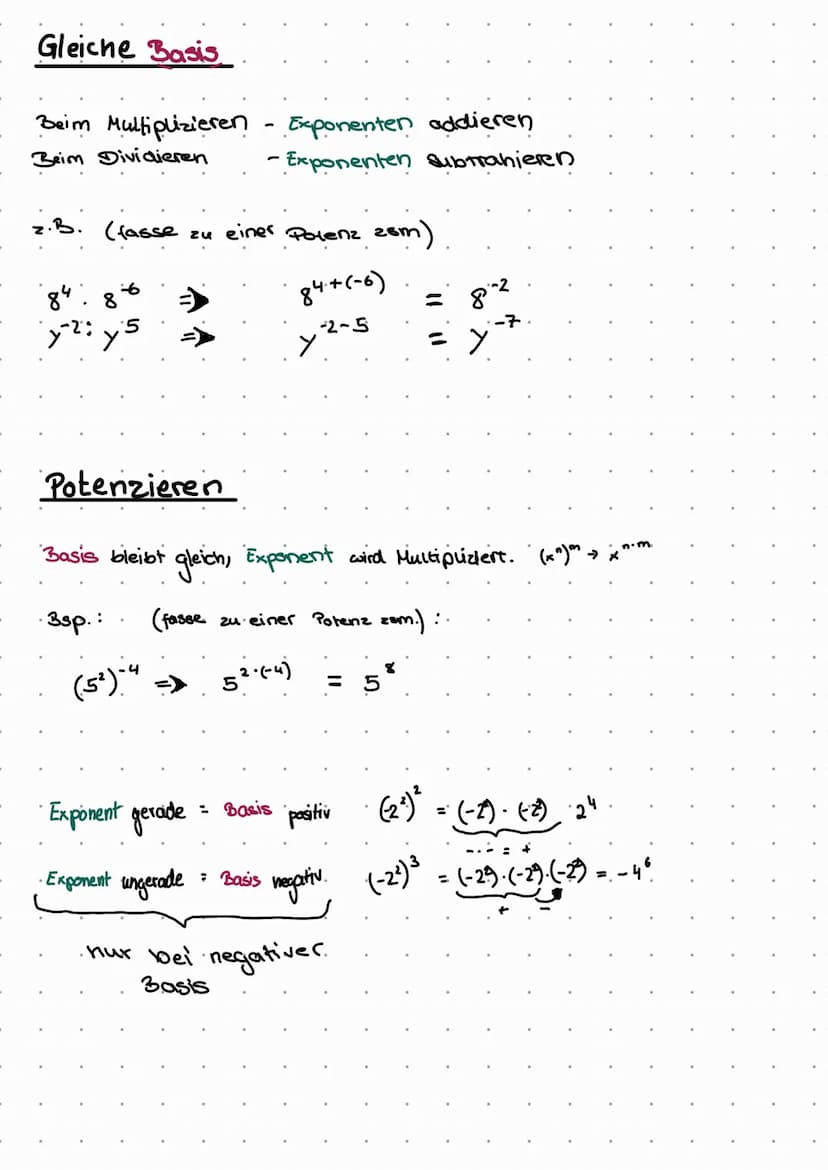 Gleiche Basis
Beim Multiplizieren - Exponenten addieren
Beim Dividieren - Exponenten subtrahieren
z.B. (fasse zu einer Potenz zsm)
8⁴ · 8⁻⁶ => 8⁴⁺⁽⁻⁶⁾ = 8⁻²
y⁻² : y⁵ => y⁻²⁻⁵ = y⁻⁷
Potenzieren
Basis bleibt gleich, Exponent wird Multipliziert. (xⁿ)ᵐ → xⁿ·ᵐ
Bsp.: (fasse zu einer Potenz zsm.):
(5²)⁻⁴ => 5²·⁽⁻⁴⁾ = 5⁸
Exponent gerade = Basis positiv (-2²)² = (-2²) · (-2²) 2⁴
- · - = +
Exponent ungerade = Basis negativ (-2²)³ = (-2²)·(-2²)·(-2²) = -4⁶
+ -
nur bei negativer
Basis